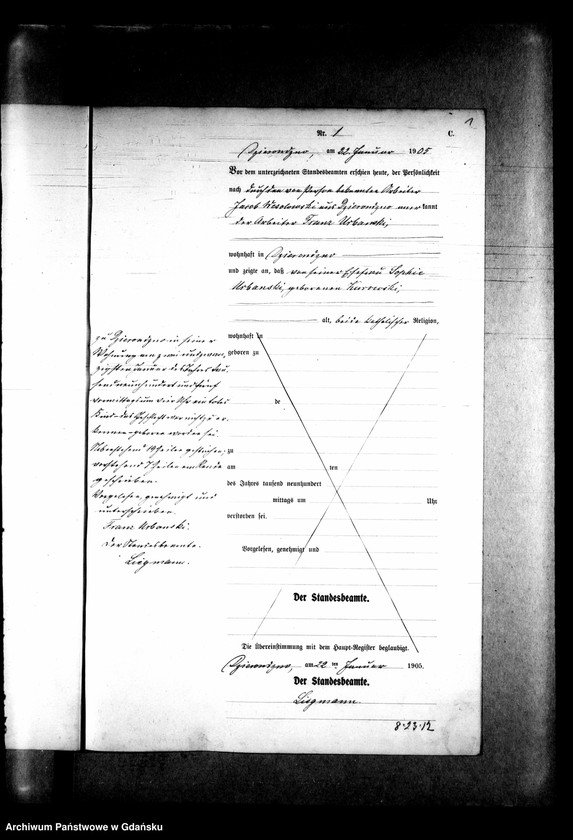 1
Nr. 1 C.
Dzierondzno, am 22. Januar 1905
Vor dem unterzeichneten Standesbeamten erschien heute, der Persönlichkeit
nach durch den von Person bekannten Arbeiter
Jacob Wesolowski aus Dzierondzno anerkannt
der Arbeiter Franz Urbanski,
wohnhaft in Dzierondzno
und zeigte an, daß von seiner Ehefrau Sophie
Urbanski, geborenen Kurowski,
alt, beide katholischer Religion,
wohnhaft in
geboren zu
de
zu
am ten
des Jahres tausend neunhundert
mittags um Uhr
verstorben sei.
Vorgelesen, genehmigt und
Der Standesbeamte.
zu Dzierondzno in seiner
Wohnung am zwei und zwan-
zigsten Januar des Jahres tau-
send neunhundert und fünf
vormittags um vier Uhr ein todtes
Kind – das Geschlecht war nicht zu er-
kennen – geboren worden sei.
Nebenstehend 14 Zeilen gestrichen,
vorstehend 7 Zeilen am Rande
geschrieben.
Vorgelesen, genehmigt und
unterschrieben.
Franz Urbanski.
Der Standesbeamte.
Liegmann.
Die Übereinstimmung mit dem Haupt-Register beglaubigt.
Dzierondzno, am 22 ten Januar 1905.
Der Standesbeamte.
Liegmann.
8·23·12
Archiwum Państwowe w Gdańsku